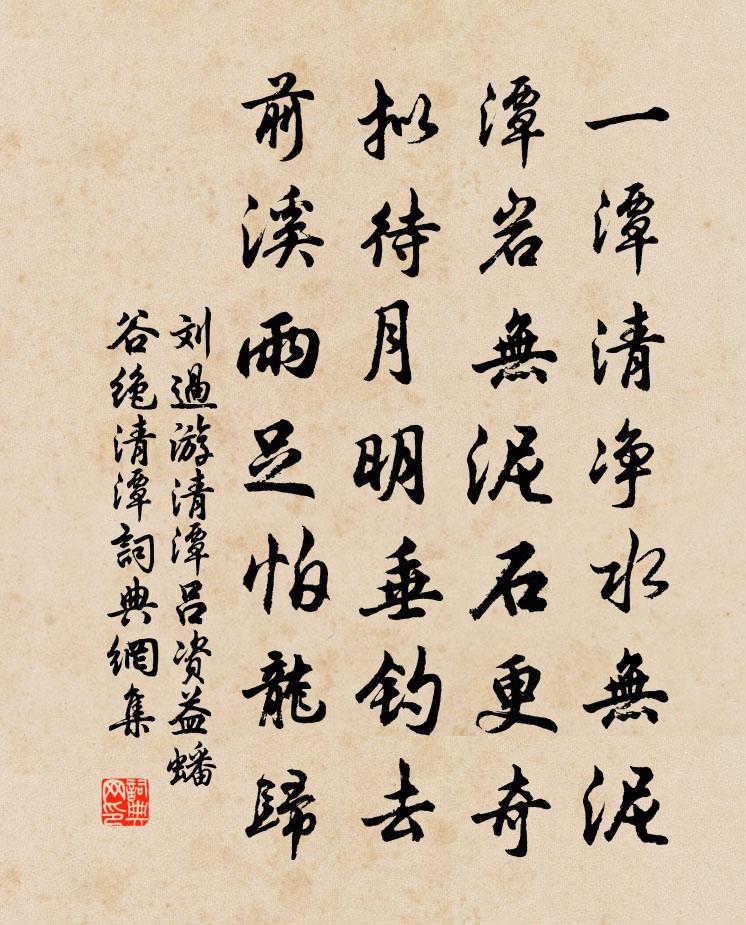 一潭清净水無泥
潭岩無泥石更奇
拟待月明垂钓去
前溪雨足怕龍歸
刘過游清潭吕资益蟠
谷绝清潭詞典網集
詞典
网印